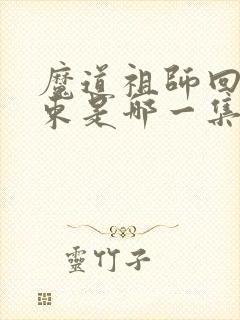 魔道祖師回
東是哪一集
靈竹子